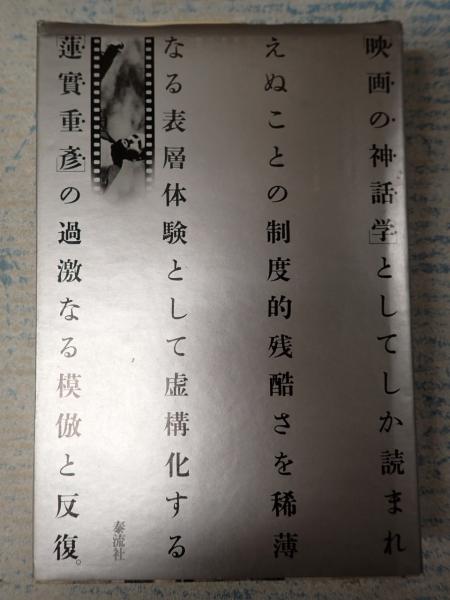 「映画の神話学」としてしか読まれ
えぬことの制度的残酷さを稀薄
なる表層体験として虚構化する
「蓮實重彥」の過激なる模倣と反復。
泰流社